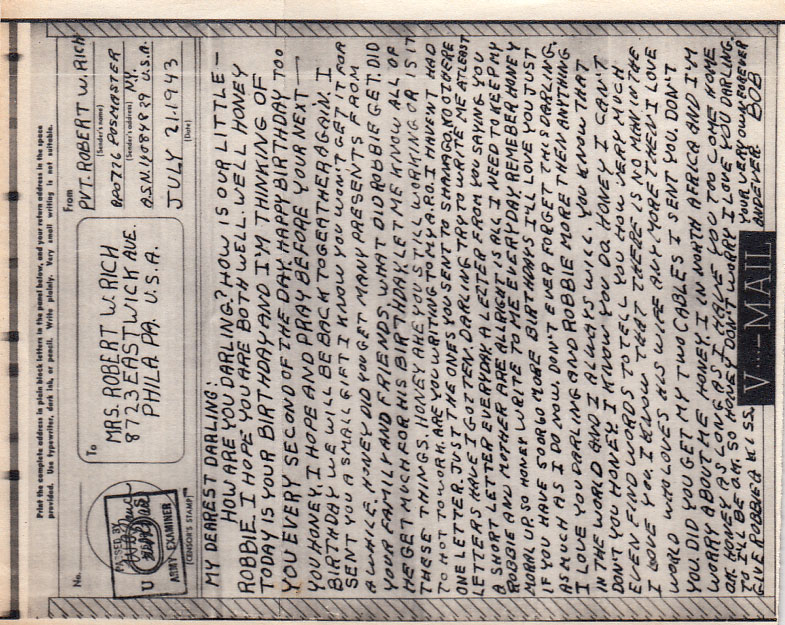 Print the complete address in plain block letters in the panel below, and your return address in the space
provided. Use typewriter, dark ink, or pencil. Write plainly. Very small writing is not suitable.
No.
PASSED BY
U S
ARMY EXAMINER
(CENSOR'S STAMP)
To
MRS. ROBERT W. RICH
8723 EASTWICK AVE.
PHILA PA. U.S.A.
From
PVT. ROBERT W. RICH
(Sender's name)
APO 726 POSMASTER
(Sender's address) NY.
A.S.N. U.S.A.
JULY 21. 1943
(Date)
MY DEAREST DARLING:
HOW ARE YOU DARLING? HOW IS OUR LITTLE —
ROBBIE. I HOPE YOU ARE BOTH WELL. WELL HONEY
TODAY IS YOUR BIRTHDAY AND I'M THINKING OF
YOU EVERY SECOND OF THE DAY. HAPPY BIRTHDAY TOO
YOU HONEY. I HOPE AND PRAY BEFORE YOUR NEXT —
BIRTHDAY WE WILL BE BACK TOGEATHER AGAIN. I
SENT YOU A SMALL GIFT I KNOW YOU WON'T GET IT FOR
A WHILE. HONEY DID YOU GET MANY PRESENTS FROM
YOUR FAMILY AND FRIENDS. WHAT DID ROBBIE GET. DID
HE GET MUCH FOR HIS BIRTHDAY. LET ME KNOW ALL OF
THESE THINGS. HONEY ARE YOU STILL WORKING OR IS IT
TO HOT TO WORK. ARE YOU WRITING TO MY A.P.O. I HAVEN'T HAD
ONE LETTER. JUST THE ONES YOU SENT TO SHANAGO. NO OTHERE
LETTERS HAVE I GOTTEN. DARLING TRY TO WRITE ME ATLEAST
A SHORT LETTER EVERYDAY. A LETTER FROM YOU SAYING YOU
ROBBIE AND MOTHER ARE ALLRIGHT IS ALL I NEED TO KEEP MY
MORAL UP. SO HONEY WRITE TO ME EVERYDAY. REMEBER HONEY
IF YOU HAVE 50 OR 60 MORE BIRTHDAYS I'LL LOVE YOU JUST
AS MUCH AS I DO NOW. DON'T EVER FORGET THIS DARLING.
I LOVE YOU DARLING AND ROBBIE MORE THEN ANYTHING
IN THE WORLD AND I ALWAYS WILL. YOU KNOW THAT
DON'T YOU HONEY. I KNOW YOU DO. HONEY I CAN'T
EVEN FIND WORDS TO TELL YOU HOW VERY MUCH
I LOVE YOU. I KNOW THAT THERE IS NO MAN IN THE
WORLD WHO LOVES HIS WIFE ANY MORE THEN I LOVE
YOU. DID YOU GET MY TWO CABLES I SENT YOU. DON'T
WORRY ABOUT ME HONEY. I IN NORTH AFRICA AND I'M
OK. HONEY AS LONG AS I HAVE YOU TOO COME HOME
TO I'LL BE O.K. SO HONEY DON'T WORRY I LOVE YOU DARLING.
GIVE ROBBIE A KISS. YOUR VERY OWN FOREVER
AND EVER BOB
V...—MAIL